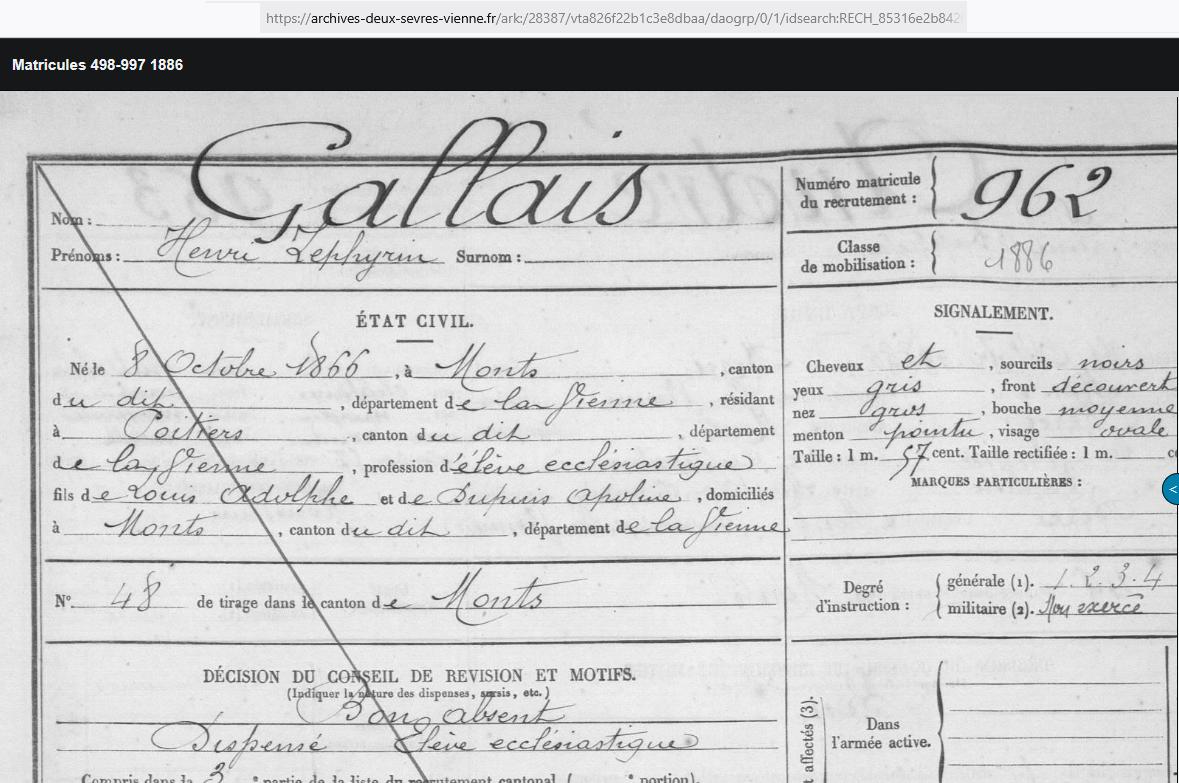 https://archives-deux-sevres-vienne.fr/ark:/28387/vta826f22b1c3e8dbaa/daogrp/0/1/idsearch:RECH_85316e2b842
Matricules 498-997 1886
Nom : Gallais
Prénoms : Henri Zephyrin Surnom :
Numéro matricule
du recrutement : 962
Classe
de mobilisation : 1886
ÉTAT CIVIL.
Né le 8 Octobre 1866, à Monts, canton
du dit, département de la Vienne, résidant
à Poitiers, canton du dit, département
de la Vienne, profession d'élève ecclésiastique
fils de Louis Adolphe et de Dupuis Apoline, domiciliés
à Monts, canton du dit, département de la Vienne
N° 48 de tirage dans le canton de Monts
DÉCISION DU CONSEIL DE REVISION ET MOTIFS.
(Indiquer la nature des dispenses, sursis, etc.)
Bon absent
Dispensé Élève ecclésiastique
Compris dans la 3e partie de la liste du recrutement cantonal ( e portion).
SIGNALEMENT.
Cheveux et, sourcils noirs
yeux gris, front découvert
nez gros, bouche moyenne
menton pointu, visage ovale
Taille : 1 m. 57 cent. Taille rectifiée : 1 m. c
MARQUES PARTICULIÈRES :
<
Degré
d'instruction :
générale (1). 1.2.3.4
militaire (2). Non exercé
affectés (3).
Dans
l'armée active.